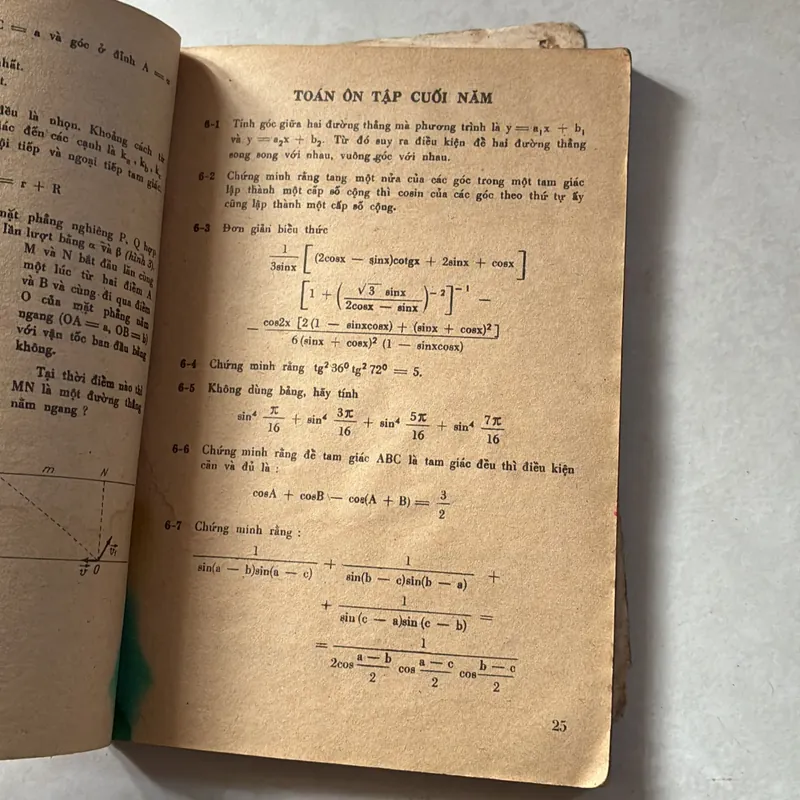 C = a và góc ở đỉnh A =
nhất.
t.
đều là nhọn. Khoảng cách từ
giác đến các cạnh là kₐ, k_b, k_c
nội tiếp và ngoại tiếp tam giác.
= r + R
mặt phẳng nghiêng P, Q hợp
lần lượt bằng α và β (hình 3).
M và N bắt đầu lăn cùng
một lúc từ hai điểm A
và B và cùng đi qua điểm
O của mặt phẳng nằm
ngang (OA = a, OB = b)
với vận tốc ban đầu bằng
không.
Tại thời điểm nào thì
MN là một đường thẳng
nằm ngang ?
m N
v v₁ O
TOÁN ÔN TẬP CUỐI NĂM
6-1 Tính góc giữa hai đường thẳng mà phương trình là y = a₁x + b₁
và y = a₂x + b₂. Từ đó suy ra điều kiện để hai đường thẳng
song song với nhau, vuông góc với nhau.
6-2 Chứng minh rằng tang một nửa của các góc trong một tam giác
lập thành một cấp số cộng thì cosin của các góc theo thứ tự ấy
cũng lập thành một cấp số cộng.
6-3 Đơn giản biểu thức
1/3sinx [ (2cosx − sinx)cotgx + 2sinx + cosx ]
[ 1 + ( √3 sinx / 2cosx − sinx )⁻² ]⁻¹ −
− cos2x [2 (1 − sinxcosx) + (sinx + cosx)²] / 6 (sinx + cosx)² (1 − sinxcosx)
6-4 Chứng minh rằng tg² 36⁰ tg² 72⁰ = 5.
6-5 Không dùng bảng, hãy tính
sin⁴ π/16 + sin⁴ 3π/16 + sin⁴ 5π/16 + sin⁴ 7π/16
6-6 Chứng minh rằng để tam giác ABC là tam giác đều thì điều kiện
cần và đủ là :
cosA + cosB − cos(A + B) = 3/2
6-7 Chứng minh rằng :
1/sin(a − b)sin(a − c) + 1/sin(b − c)sin(b − a) +
+ 1/sin (c − a)sin (c − b) =
= 1/2cos a − b/2 cos a − c/2 cos b − c/2
25